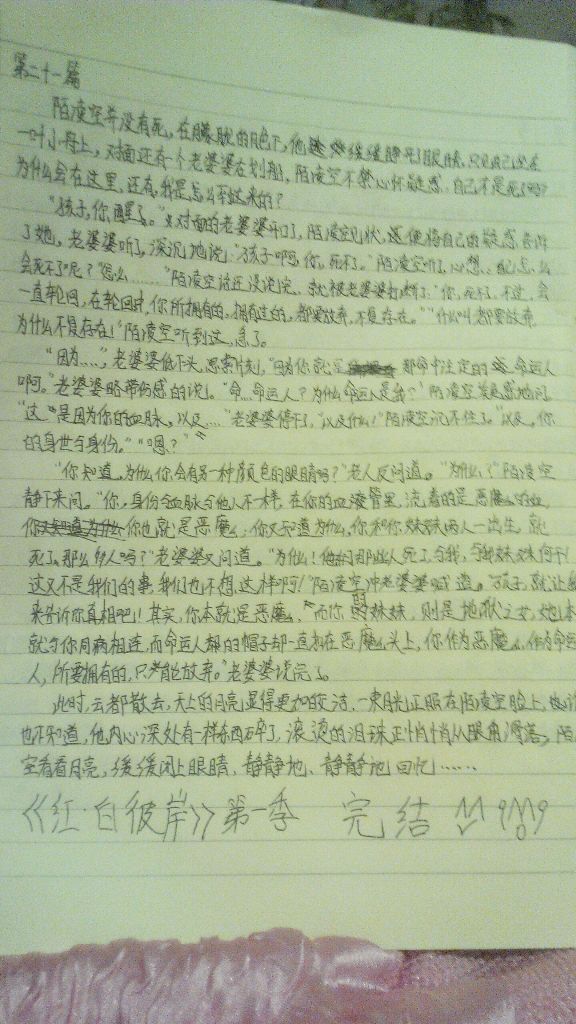 第二十一篇
陌凌空并没有死，在朦胧的月色下，他缓缓睁开了眼睛，只见自己坐在
一叶小舟上，对面还有一个老婆婆在划船，陌凌空不禁心怀疑惑，自己不是死了吗？
为什么会在这里，还有，我是怎么来的？
“孩子，你醒了。”对面的老婆婆开口了，陌凌空见状，便将自己的疑惑告诉
了她。老婆婆听了，深沉地说：“孩子啊，你，死了。”陌凌空听了，心想，怎么
会死了呢？“怎么……”陌凌空话还没说完，就被老婆婆打断了：“你，死了，不过，会
一直轮回，在轮回中，你所拥有的，拥有过的，都要放弃，不复存在。”“什么叫都要放弃
为什么不复存在！”陌凌空听到这，急了。
“因为……”老婆婆低下头，思索片刻，“因为你就是 那命中注定的命运人
啊。”老婆婆略带伤感的说。“命…命运人？为什么命运人是我？”陌凌空疑惑地问。
“这…是因为你的血脉，以及……”老婆婆停下了。“以及什么！”陌凌空沉不住了。“以及，你
的身世与身份。”“嗯？”
“你知道，为什么你会有另一种颜色的眼睛吗？”老人反问道。“为什么？”陌凌空
静下来问。“你，身份与血脉与他人不一样，在你的血液管里，流着的是恶魔的血，
你也就是恶魔；你又知道为什么，你和你妹妹两人一出生，就
死了那么多人吗？”老婆婆又问道。“为什么！他们那些人死了与我，与我妹妹何干！
这又不是我们的事，我们也不想这样啊！”陌凌空冲老婆婆喊道。“孩子，就让我
来告诉你真相吧！其实，你本就是恶魔，而你的妹妹，则是地狱之女，她本
就与你同病相连，而命运人的帽子却一直扣在恶魔头上，你作为恶魔，作为命运
人，所要拥有的，只能放弃。”老婆婆说完了。
此时，云都散去，天上的月亮显得更加皎洁，一束月光正照在陌凌空脸上，也许
也不知道，他内心深处有一样东西碎了，滚烫的泪珠正悄悄从眼角滑落，陌
空看着月亮，缓缓闭上眼睛，静静地、静静地回忆……
《红·白彼岸》第一季 完结